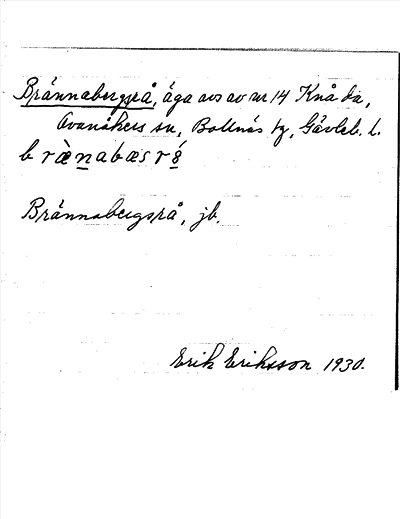 Brännabergsrå, äga avs av nr 14 Knåda,
Ovanåkers sn, Bollnäs tg, Gävleb. l.
b r æ̀ n a b æ s r ǻ
Brännabergsrå, jb.
Erik Eriksson 1930.